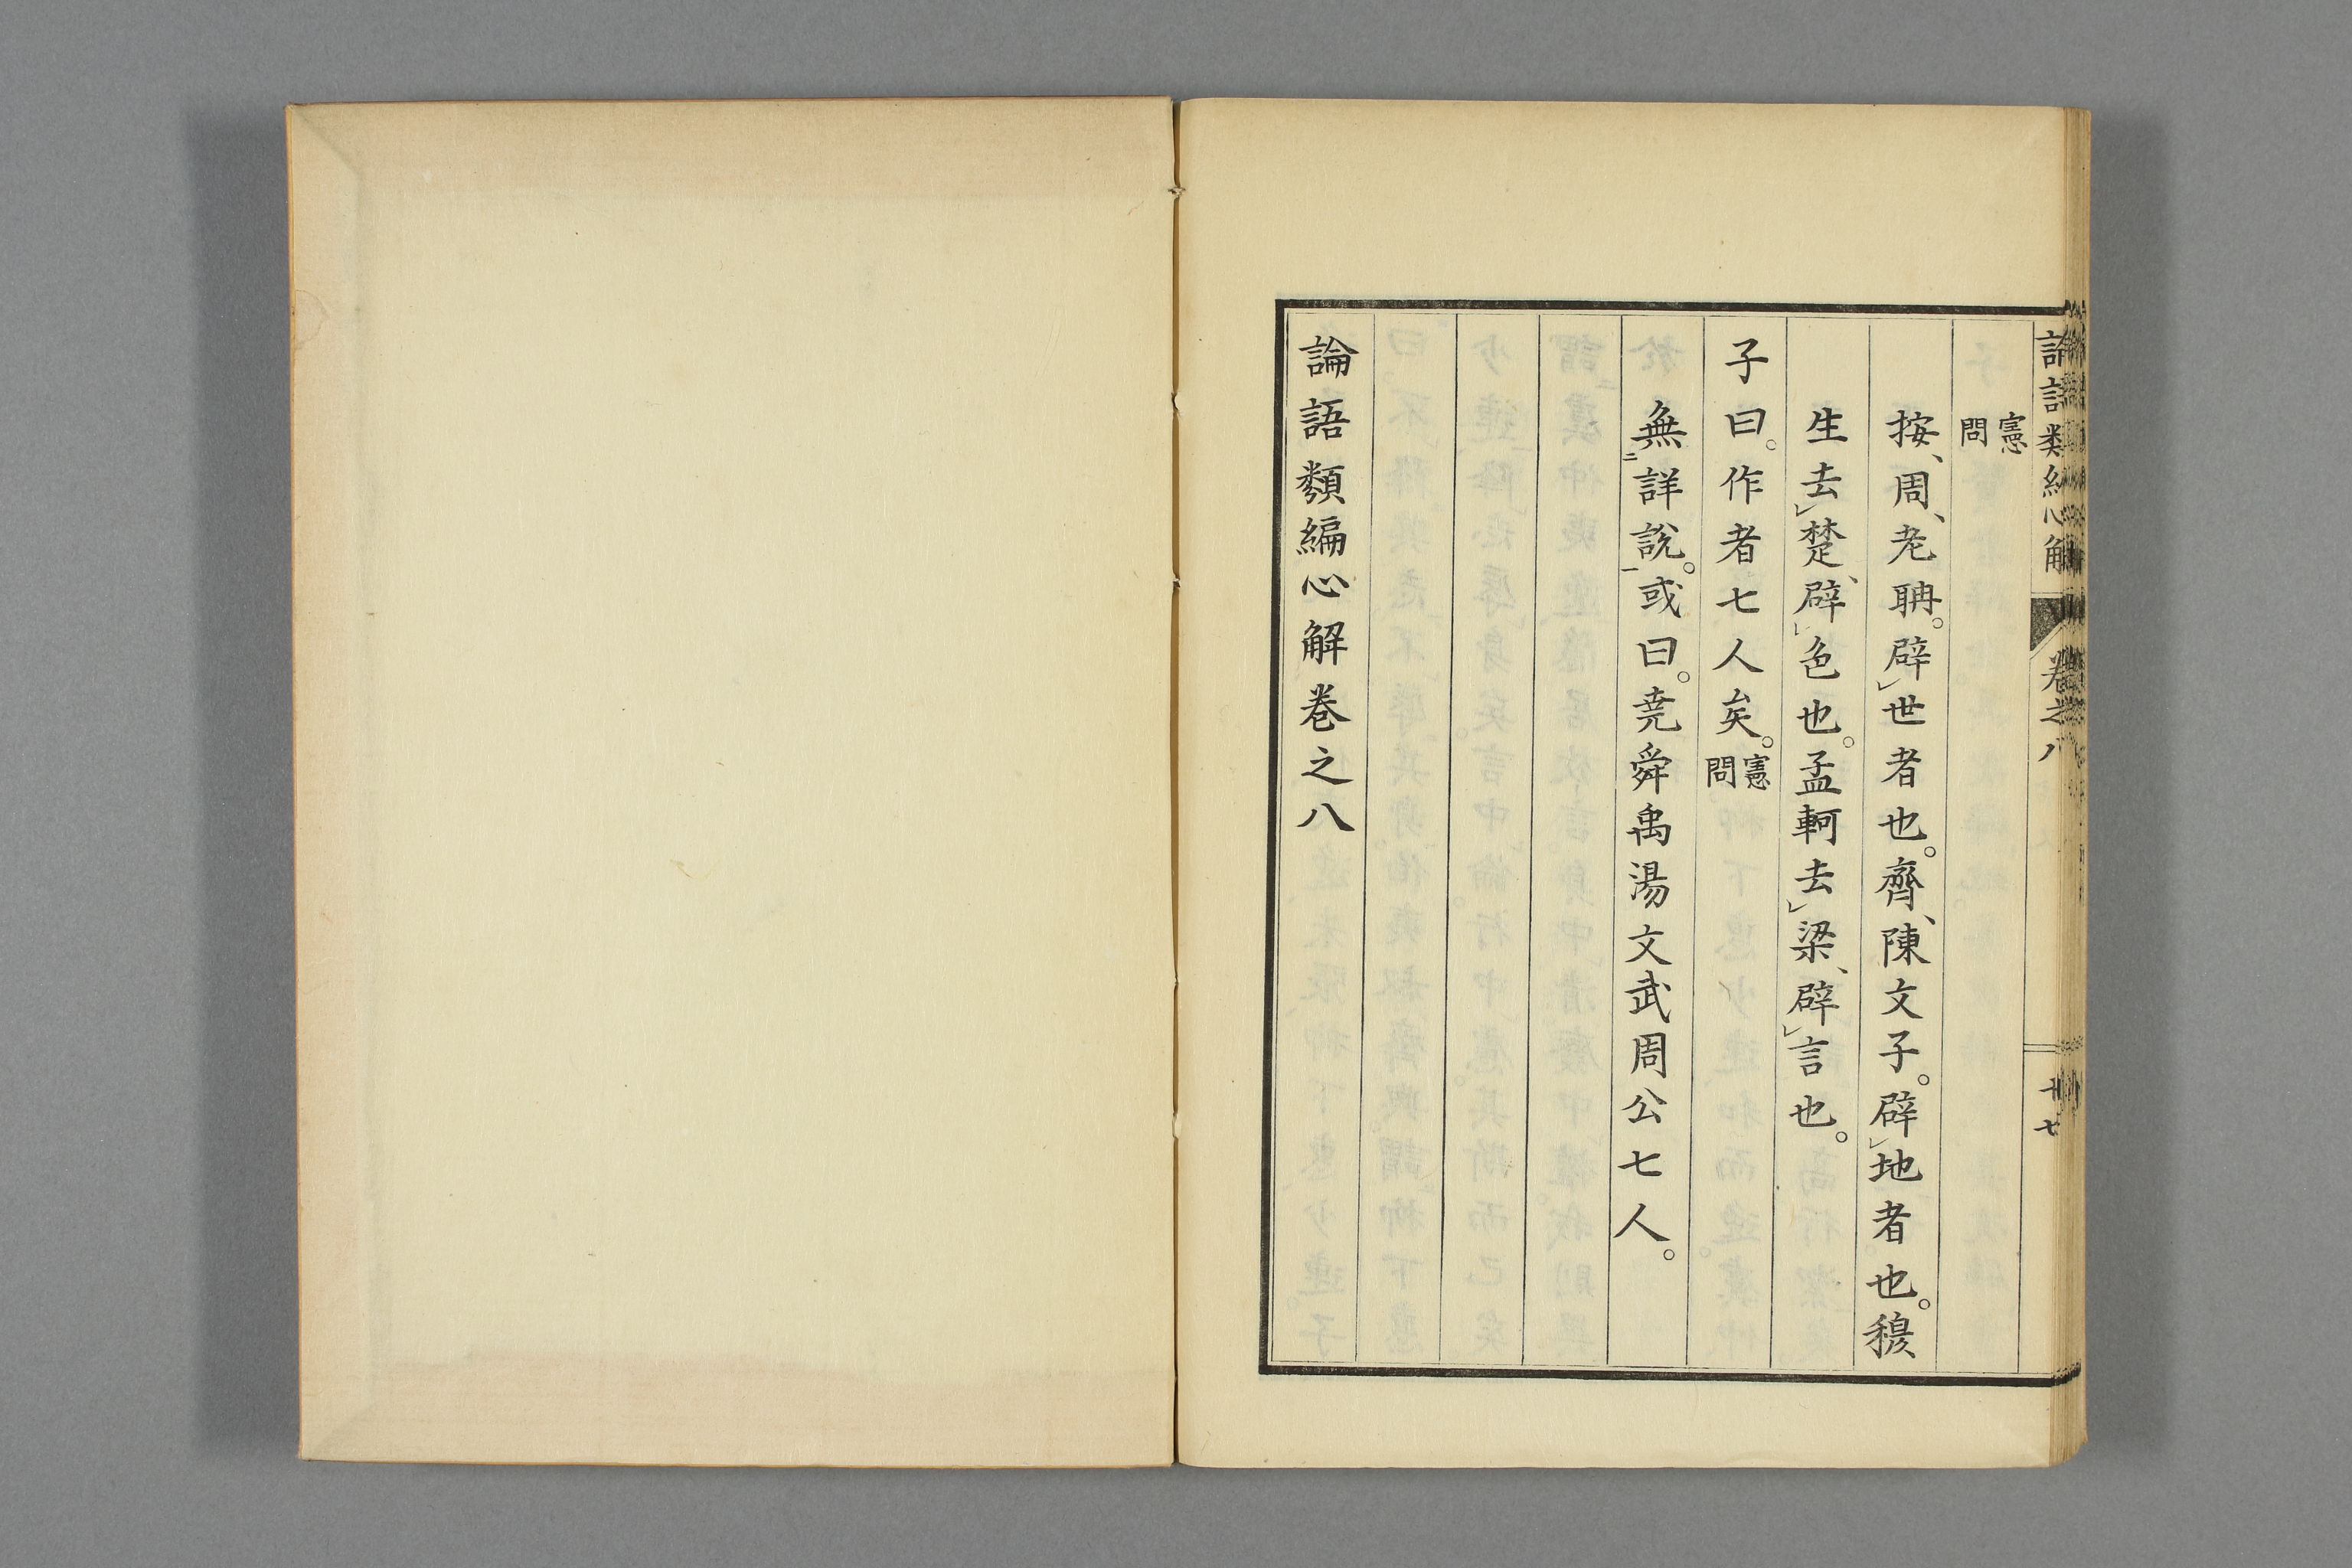 論語類編心解 卷之八 十七
憲問
按、周、老聃。辟世者也。齊、陳文子。辟地者也。穆、
生去楚、辟色也。孟軻去梁、辟言也。
子曰。作者七人矣。憲問
無二詳說一。或曰。堯舜禹湯文武周公七人。
論語類編心解卷之八